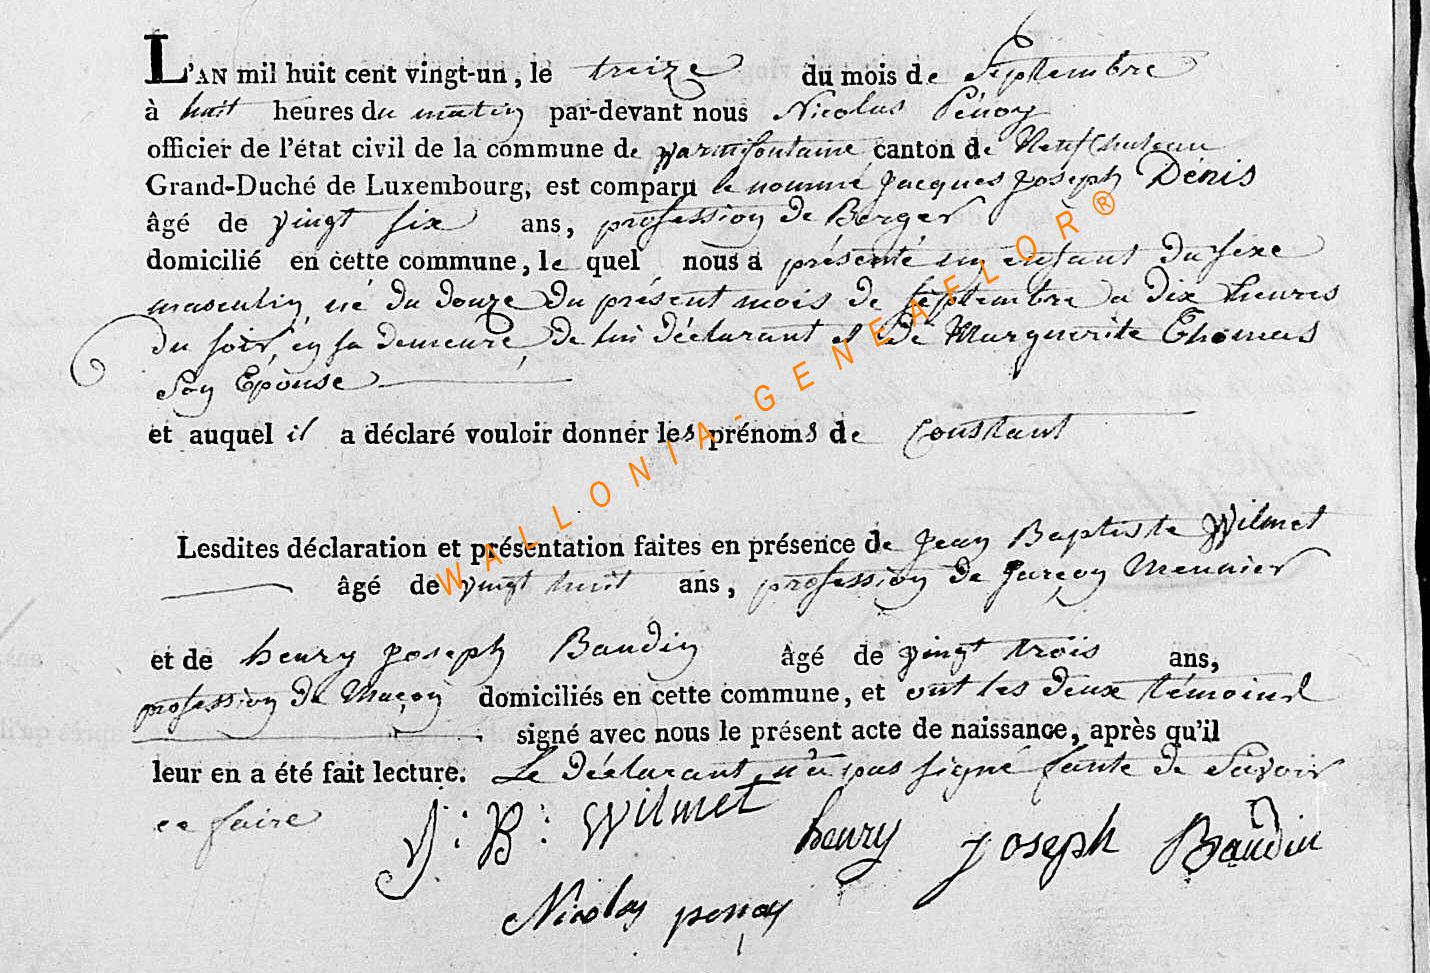 L'AN mil huit cent vingt-un, le treize du mois de Septembre
à huit heures du matin par-devant nous Nicolas Pénoy
officier de l'état civil de la commune de Warmifontaine canton de Neufchateau
Grand-Duché de Luxembourg, est comparu le nommé Jacques Joseph Dénis
âgé de vingt six ans, profession de Berger
domicilié en cette commune, le quel nous a présenté un enfant du sexe
masculin, né du douze du présent mois de Septembre a dix heures
du soir, en sa demeure, de lui déclarant et de Marguerite Thomas
Son Epouse
et auquel il a déclaré vouloir donner les prénoms de Constant
Lesdites déclaration et présentation faites en présence de Jean Baptiste Wilmet
âgé de vingt huit ans, profession de Garçon Meunier
et de henry joseph Baudin âgé de vingt trois ans,
profession de Maçon domiciliés en cette commune, et ont les deux témoins
signé avec nous le présent acte de naissance, après qu'il
leur en a été fait lecture. Le déclarant n'a pas signé faute de Savoir
ce faire
J: B: Wilmet henry joseph Baudin
Nicolas penoy
WALLONIA-GENEAFLOR®